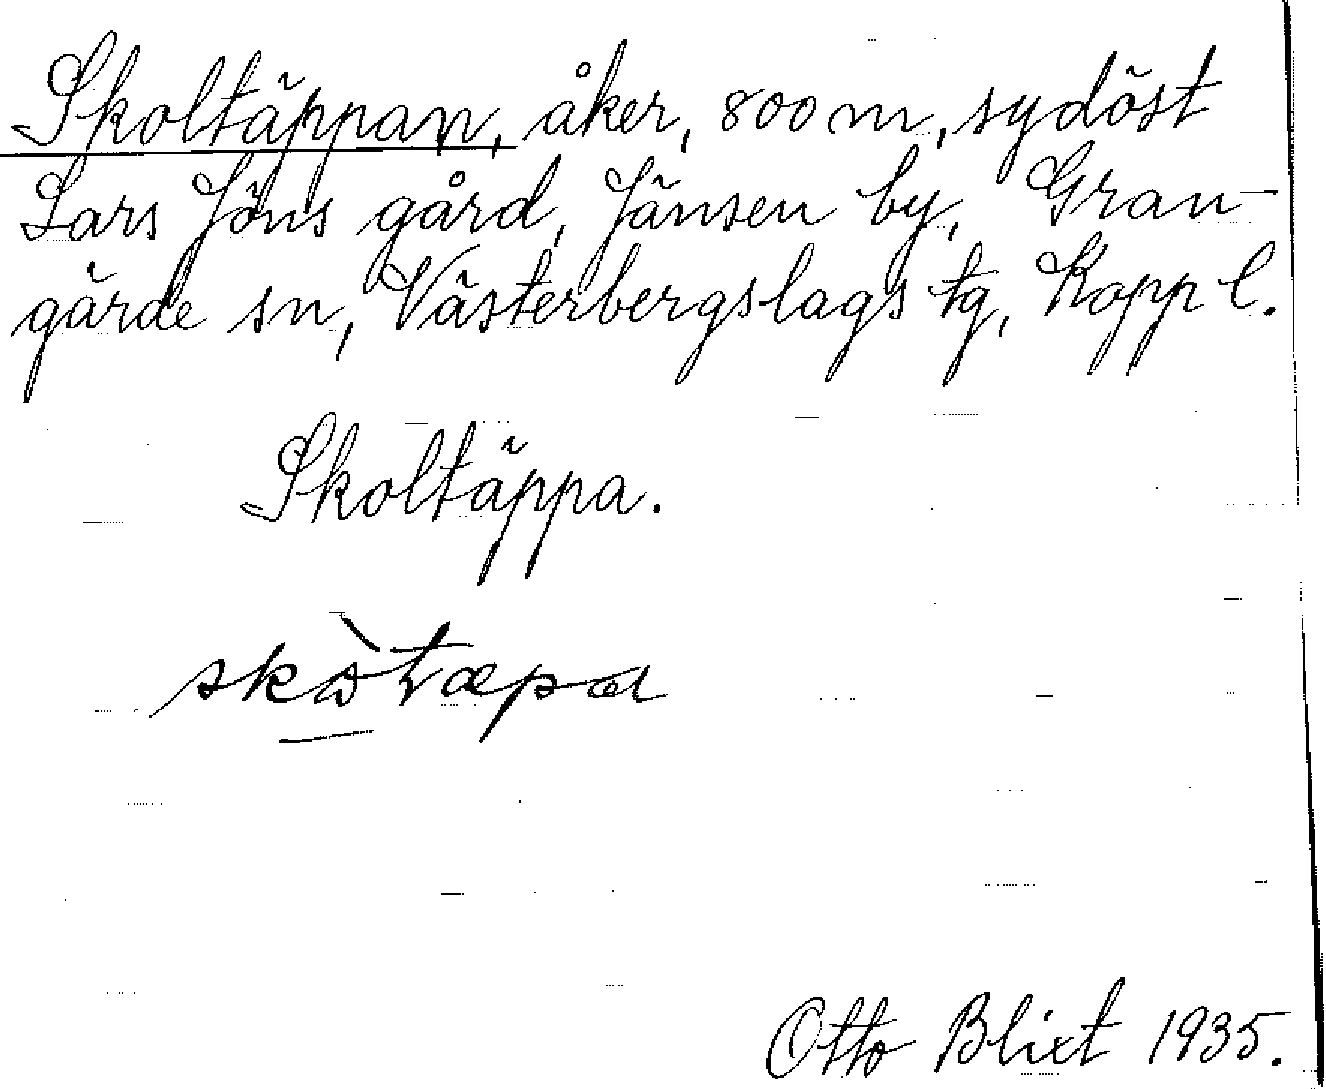 Skoltäppan, åker, 800 m, sydöst
Lars Jöns gård, Jänsen by, Gran-
gärde sn, Västerbergslags tg, Kopp l.
Skoltäppa.
Otto Blixt 1935.